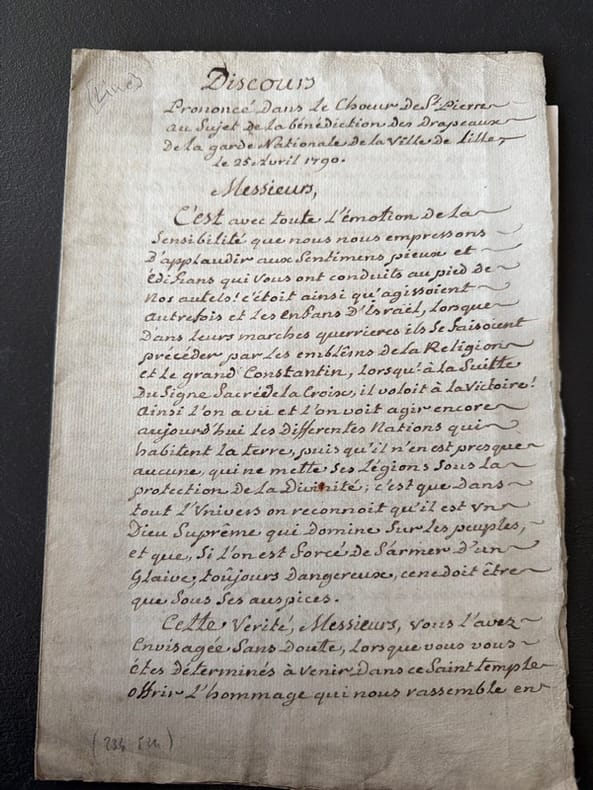 (Lille)
Discours
Prononcé Dans le Chœur de St. Pierre
au Sujet de la bénédiction des Drapeaux
de la garde Nationale de la Ville de Lille,
le 25 Avril 1790.
Messieurs,
C'est avec toute l'émotion de la
Sensibilité que nous nous empressons
D'applaudir aux Sentimens pieux et
édifians qui vous ont conduits au pied de
nos autels! c'étoit ainsi qu'agissoient
autrefois et les enfans D'Israël, lorsque
Dans leurs marches guerrieres ils se faisoient
précéder par les emblêms de la Religion
et le grand Constantin, lorsqu'à la Suitte
Du Signe Sacré de la Croix, il voloit à la Victoire!
ainsi l'on a vû et l'on voit agir encore
aujourd'hui les Differentes Nations qui
habitent la terre, puis qu'il n'en est presque
aucune, qui ne mette ses légions Sous la
protection de la Divinité; c'est que Dans
tout l'Univers on reconnoit qu'il est un
Dieu Suprême qui Domine Sur les peuples,
et que, Si l'on est forcé de S'armer D'un
Glaive, toûjours Dangereux, ce ne doit être
que Sous Ses auspices.
Cette Verité, Messieurs, vous l'avez
Envisagée Sans Doutte, lorsque vous vous
êtes déterminés à venir Dans ce Saint temple
offrir l'hommage qui nous rassemble en